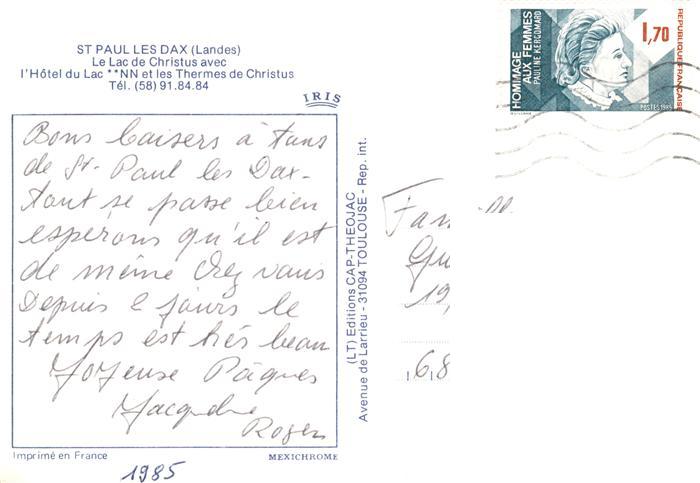 ST PAUL LES DAX (Landes)
Le Lac de Christus avec
l'Hôtel du Lac **NN et les Thermes de Christus
Tél. (58) 91.84.84
IRIS
Bons baisers à tous
de St. Paul les Dax-
tout se passe bien
espérons qu'il est
de même chez vous
Depuis 2 jours le
temps est très beau
Joyeuse Pâques
Jacqueline
Roger
Imprimé en France
MEXICHROME
1985
(LT) Editions CAP-THEOJAC
Avenue de Larrieu - 31094 TOULOUSE - Rep. int.
HOMMAGE
AUX FEMMES
PAULINE KERGOMARD
1,70
REPUBLIQUE FRANÇAISE
POSTES 1985
Fam
Gu
19,
68